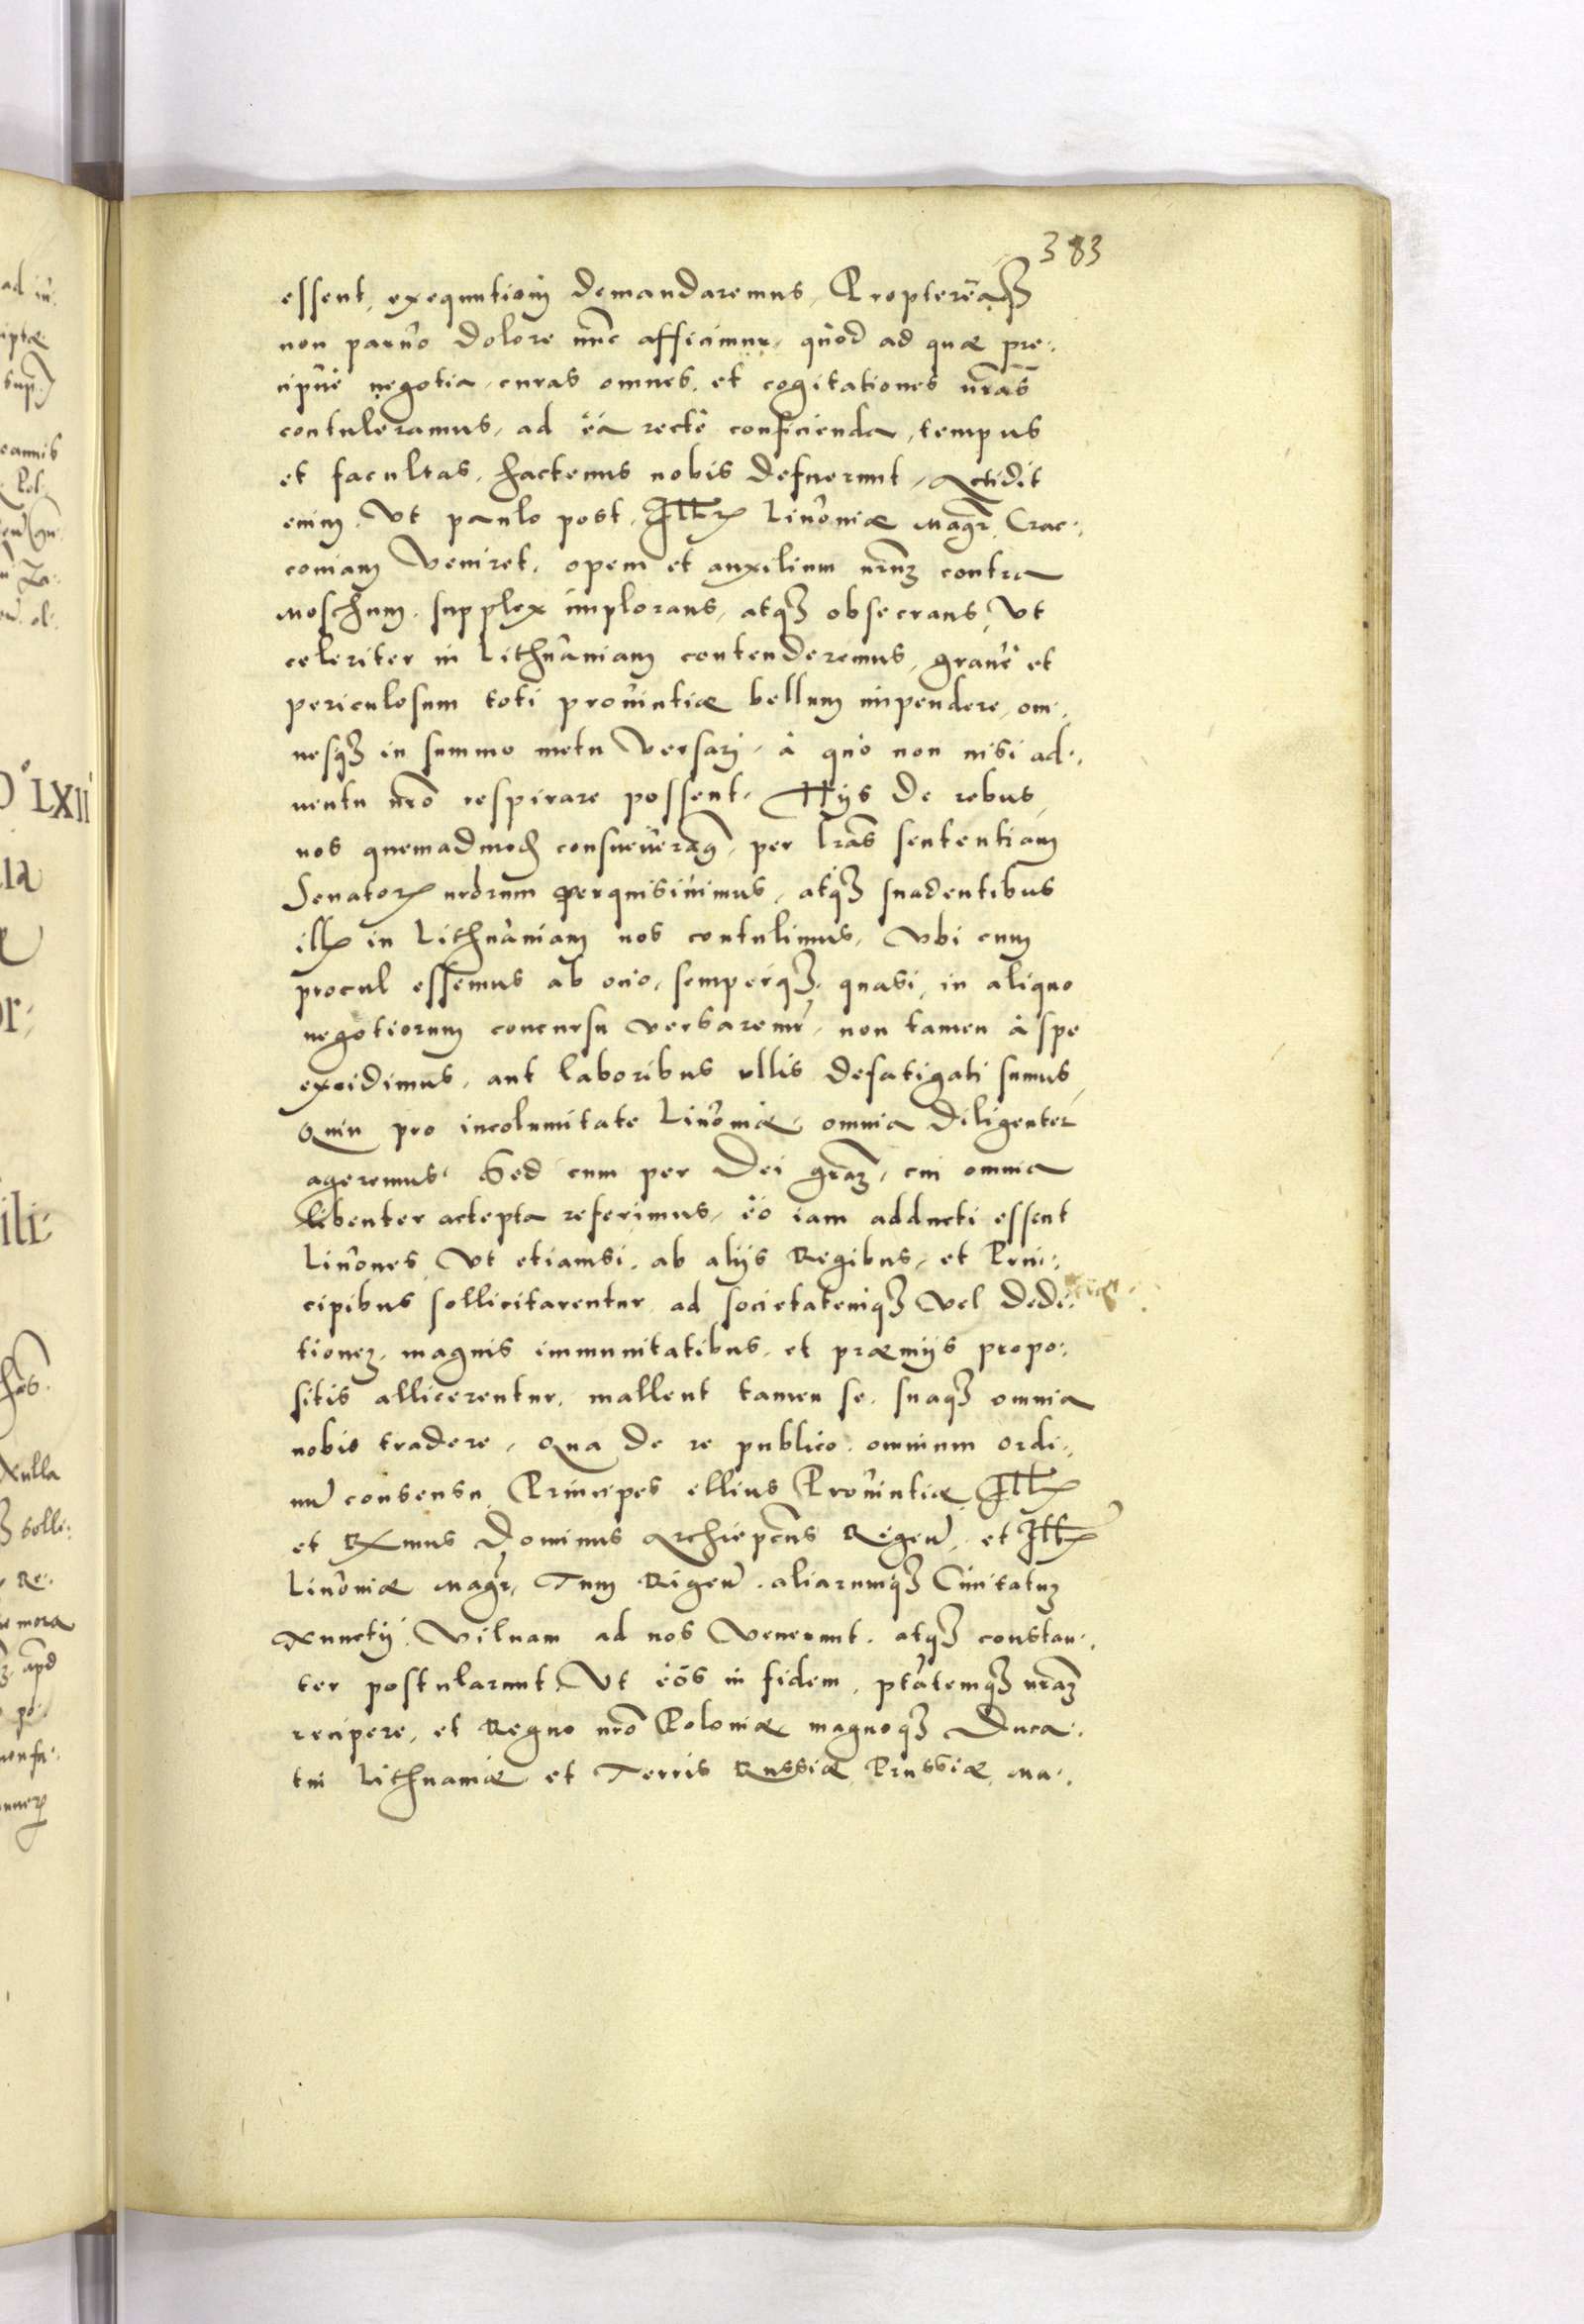 383
essent, exequutioni demandaremus, Propterëaqꝫ
non paruo dolore nũc afficimur, quod ad quæ pre:
cipuè negotia, curas omnes, et cogitationes nr̃as
contuleramus, ad ëa rectè conficienda, tempus
et facultas, hactenus nobis defuerunt, Accidit
enim, Vt paulo post, Illr̃ Liuoniæ Magr̃, Crac:
couiam Veniret, opem et auxilium nr̃um contra
Moschum, supplex implorans, atqꝫ obsecrans, Vt
celeriter in Lithuaniam contenderemus, graue et
periculosum toti prouintiæ bellum impendere, om:
nesqꝫ in summo metu Versari, à quo non nisi ad:
uentu nr̃o respirare possent. Hijs de rebus,
nos quemadmod consueueram, per lr̃as sententiam
Senatorꝝ nr̃orum perquisiuimus, atqꝫ suadentibus
illꝫ in Lithuaniam nos contulimus, Vbi cum
procul essemus ab ocio, semperqꝫ, quasi, in aliquo
negotiorum concursu versaremr̃, non tamen à spe
excidimus, aut laboribus ullis defatigati sumus,
Quin pro incolumitate Liuoniæ, omnia diligenter
ageremus. Sed cum per Dei gr̃am, cui omnia
libenter accepta referimus, ëo iam adducti essent
Liuones, Vt etiamsi, ab alijs Regibus, et Prin:
cipibus sollicitarentur ad societatemqꝫ Vel dedi:
tionem, magnis immunitatibus, et præmijs propo:
sitis allicerentur, mallent tamen se, suaqꝫ omnia
nobis tradere, Qua de re publico, omnium ordi:
nũ consensu, Principes illius Prouintiæ, Illꝫ
et Rx̃mus Dominus Archiepc̃us Rigeñ, et Illꝫ
Liuoniæ Magr̃, Tum Rigeñ, aliarumqꝫ Ciuitatum
Nunctij, Vilnam ad nos Venerunt, atqꝫ constan:
ter postularunt, Vt ëos in fidem, ptãtemqꝫ nr̃am
recipere, et Regno nr̃o Poloniæ, magnoqꝫ Duca:
tui Lithuaniæ et Terris Russiæ, Prussiæ, Ma: